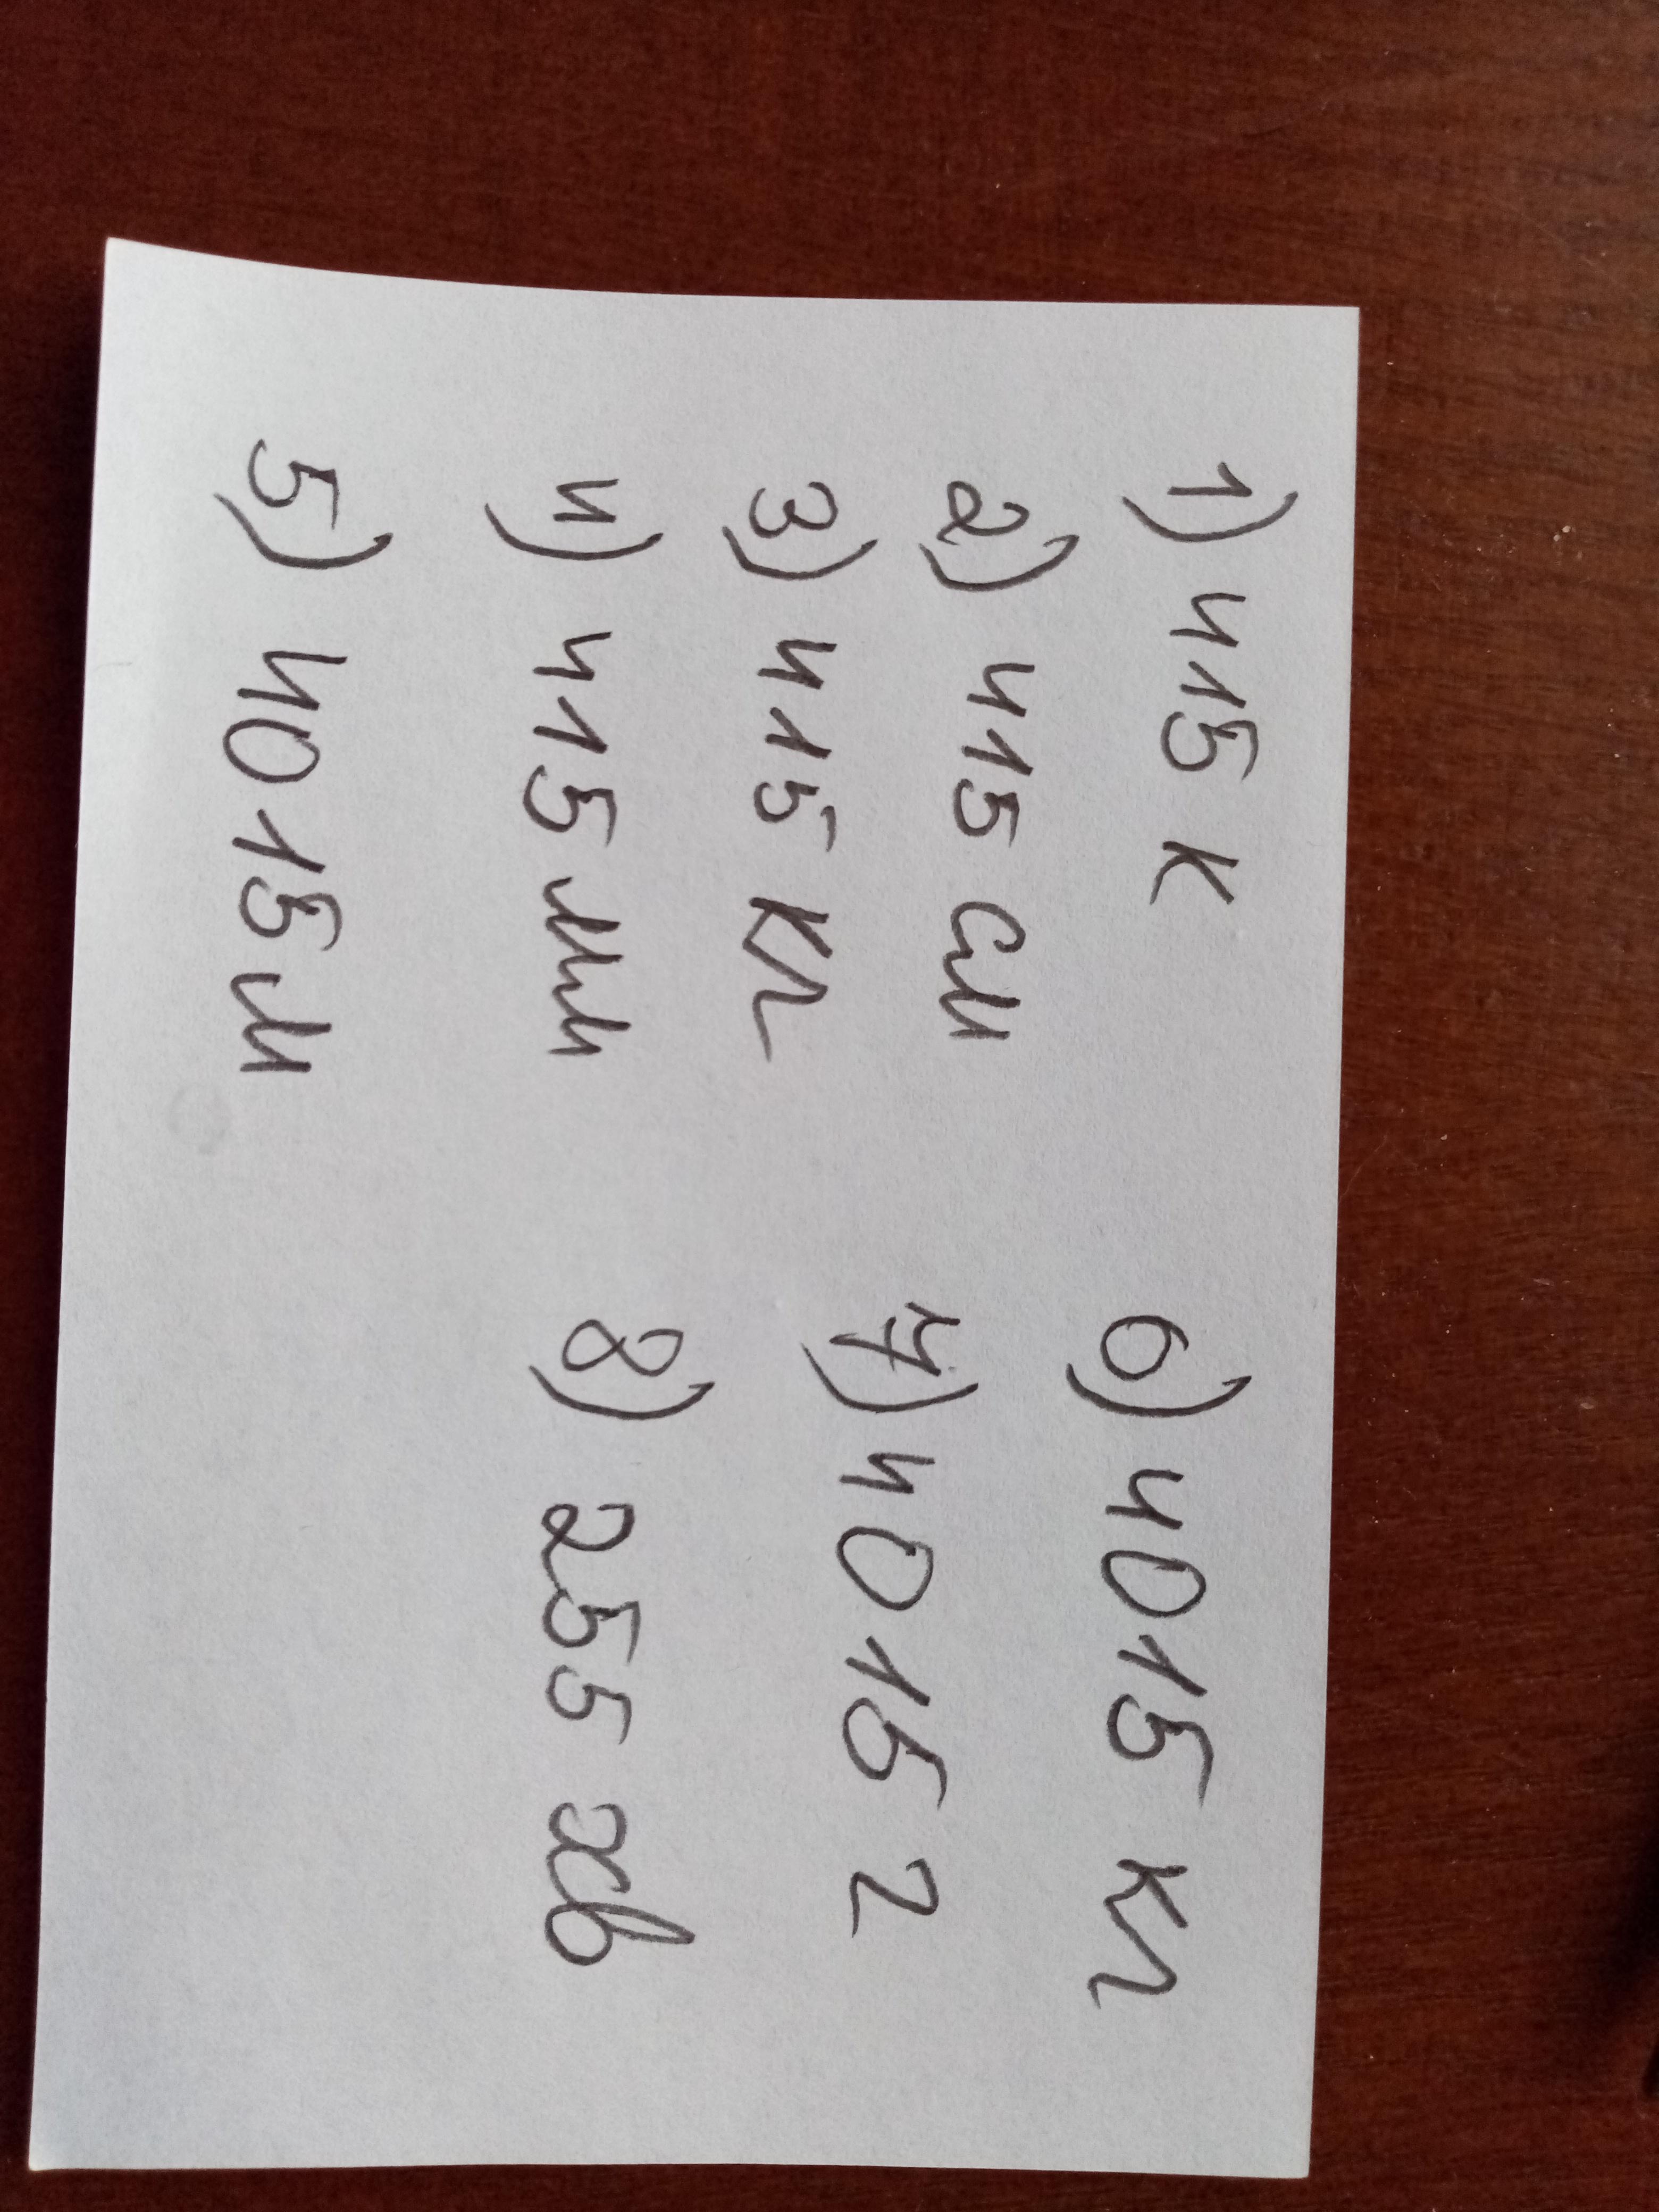 1) 415 к
2) 415 см
3) 415 кг
4) 415 мм
5) 4015 м
6) 4015 кг
7) 4015 г
8) 255 хв